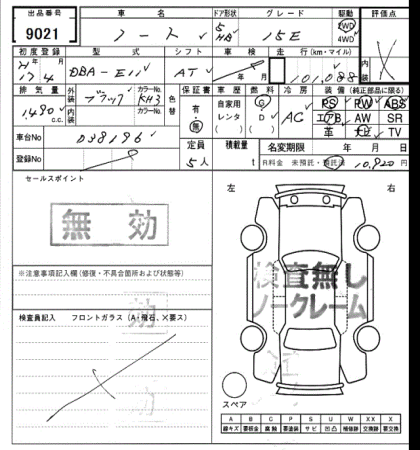 出品番号 車名 ドア形状 グレード 駆動 評価点
9021 ノート 5 HB 15E 2WD 4WD
初度登録 型式 シフト 車検 走行(km・マイル) 内装
H 17.4 DBA-E11 AT 年 月 101,088
排気量 外装 カラーNo 色替 保証書 車歴 燃料 冷房 装備(純正部品に限る)
1,490 c.c. 内装 ブラック カラーNo KH3 有・無 自家用 ( ) レンタ ( ) G D AC PS PW ABS
エアB AW SR
革 ナビ TV
車台No 038196 定員 積載量 名変期限 年 月 日
登録No 5人 t R料金 未預託・預託済 10,920 円
セールスポイント 左 右
無効
検査無し
ノークレーム
※注意事項記入欄(修復・不具合箇所および状態等)
検査員記入 フロントガラス(A・飛石、×要ス)
スペア
A B C P S U W XX X
線キズ 要板金 腐蝕 要塗装 サビ 凹凸 補修跡 交換跡 要交換